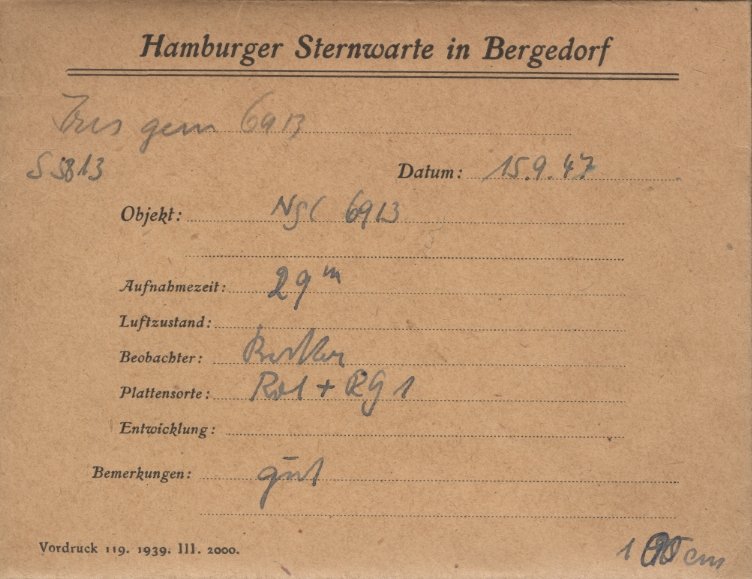 Hamburger Sternwarte in Bergedorf
gem 6913
S 5813
Datum: 15.9.47
Objekt: NGC 6913
Aufnahmezeit: 29 m
Luftzustand:
Beobachter:
Plattensorte: Rot + RG 1
Entwicklung:
Bemerkungen: gut
Vordruck 119. 1939. III. 2000.
cm